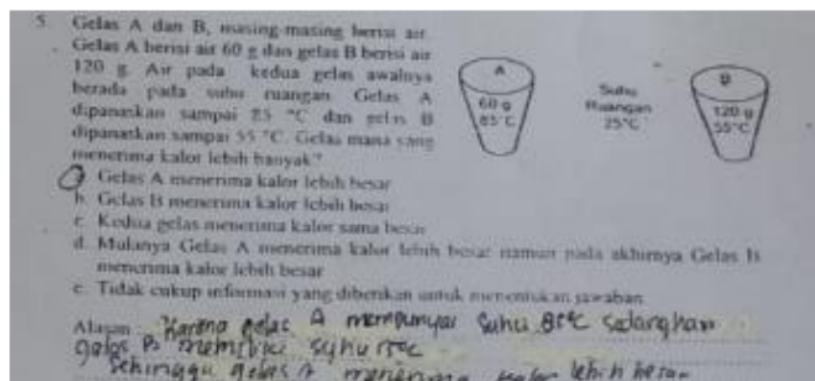 5. Gelas A dan B, masing-masing berisi air.
Gelas A berisi air 60 g dan gelas B berisi air
120 g. Air pada kedua gelas awalnya
berada pada suhu ruangan. Gelas A
dipanaskan sampai 85 °C dan gelas B
dipanaskan sampai 55 °C. Gelas mana yang
menerima kalor lebih banyak?
A
60 g
85°C
Suhu
Ruangan
25°C
B
120 g
55°C
a. Gelas A menerima kalor lebih besar
b. Gelas B menerima kalor lebih besar
c. Kedua gelas menerima kalor sama besar
d. Mulanya Gelas A menerima kalor lebih besar namun pada akhirnya Gelas B
menerima kalor lebih besar
e. Tidak cukup informasi yang diberikan untuk menentukan jawaban
Alasan : Karena gelas A mempunyai suhu 85°C sedangkan
gelas B memiliki suhu
Sehingga gelas A menerima kalor lebih besar